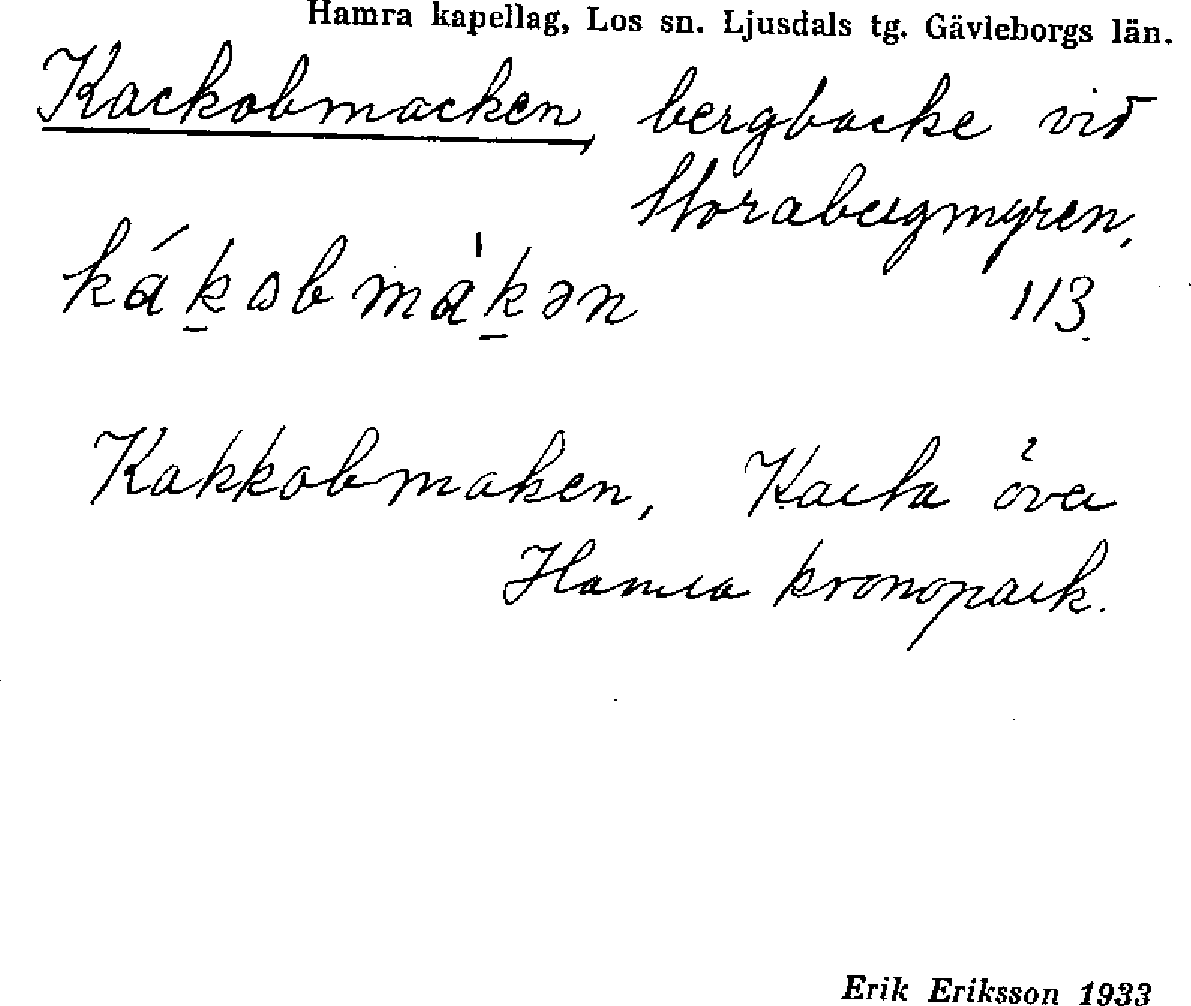 Hamra kapellag, Los sn. Ljusdals tg. Gävleborgs län.
Kackobmacken, bergbacke vid
Storabergmyren,
kák̠obmàk̠ən 113.
Kakkobmaken, Karta över
Hamra kronopark.
Erik Eriksson 1933